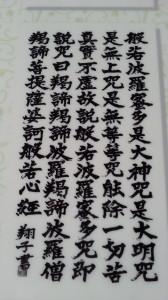 般若波羅蜜多是大神咒是大明咒
是無上咒是無等等咒能除一切苦
真實不虚故説般若波羅蜜多咒即
説咒曰羯諦羯諦波羅羯諦波羅僧
羯諦菩提薩婆訶般若心経 翔子書